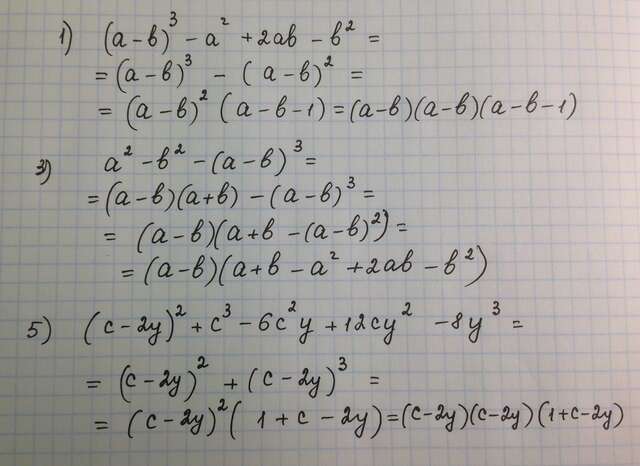 1) (a-b)³ - a² + 2ab - b² =
= (a-b)³ - (a-b)² =
= (a-b)² (a-b-1) = (a-b)(a-b)(a-b-1)
3) a² - b² - (a-b)³ =
= (a-b)(a+b) - (a-b)³ =
= (a-b)(a+b - (a-b)²) =
= (a-b)(a+b - a² + 2ab - b²)
5) (c-2y)² + c³ - 6c²y + 12cy² - 8y³ =
= (c-2y)² + (c-2y)³ =
= (c-2y)² (1+c-2y) = (c-2y)(c-2y)(1+c-2y)